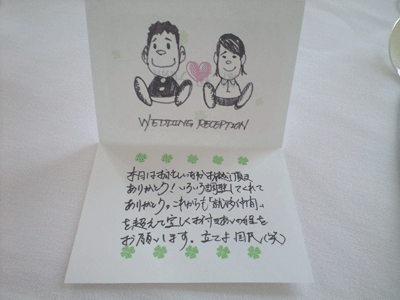 WEDDING RECEPTION
本日はお忙しい中お越し頂き
ありがとう！いろいろ調整してくれて
ありがとう。これからも"仲間"
を超えて宜しくお付きあいの程を
お願います。立てよ国民(笑)